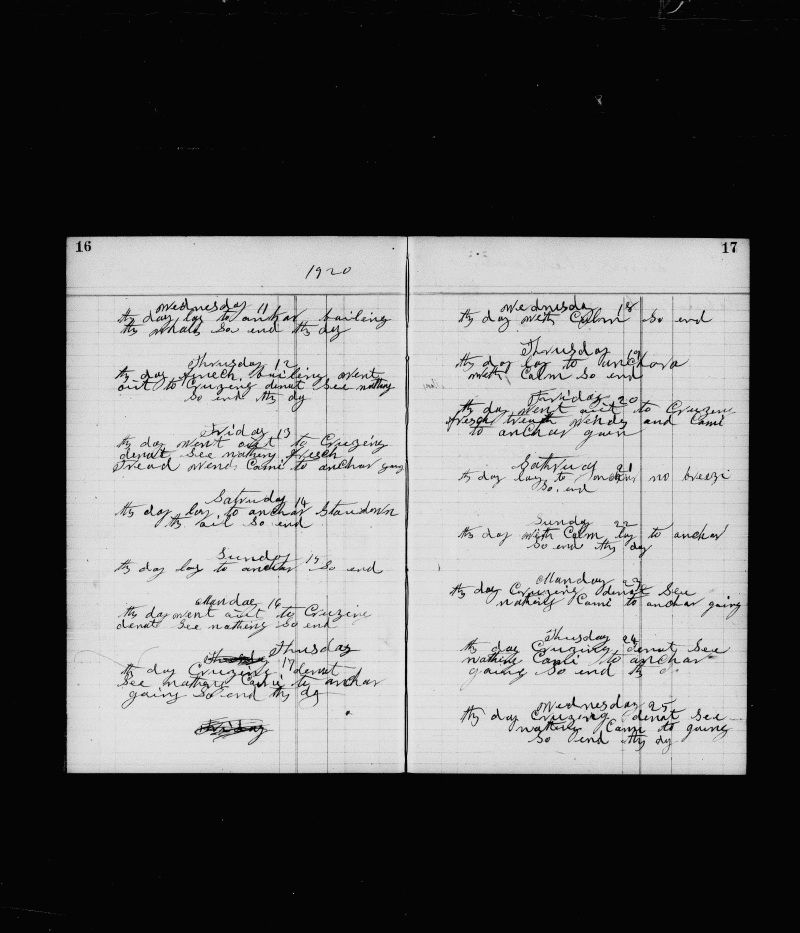 16
1920
Wednesday 11
ths day lay to anchar bailing
the whale so end ths dy
Thrusday 12
ths day finech bailing went
out to Cruzing denat see nathing
So end ths dy
Friday 13
ths day went out to Cruzing
denat see nathing fresch
Tread wend Came to anchar gang
Satruday 14
ths day lay to anchar Staudown
ths ail So end
Sunday 15
ths day lay to anchar So end
Manday 16
ths day went out to Cruzine
denat See nathing So end
Thusday
17
ths day Cruzing denat
See nathing Came to anchar
going So end ths dy
Friday
17
Wednesday 18
ths day with Calm So end
Thrusday 19
ths day lay to anchora
with Calm So end
Friday 20
ths day went out to Cruzine
fresch wendy and Came
to anchar gaun
Sathruy 21
ths day lay to anchar no breezi
So end
Sunday 22
ths day with Calm lay to anchar
So end ths day
Manday 23
ths day Cruzing denat See
nathing Came to anchar going
Thusday 24
ths day Cruzing denat See
nathing Came to anchar
going So end th
Wednesday 25
ths day Cruzing denat See
nathing Came to going
So end ths dy